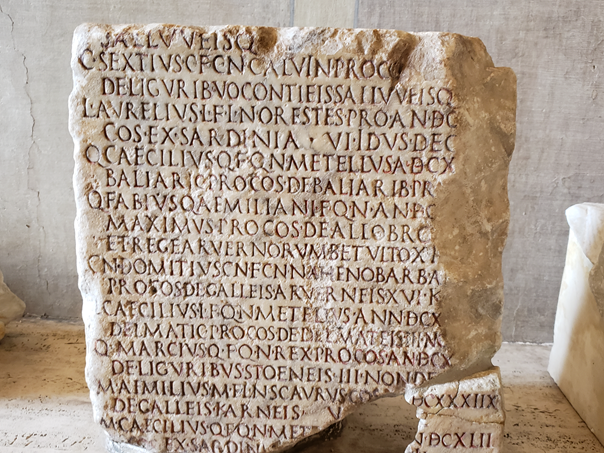 SALLVVEISQ
C·SEXTIVS·C·F·C·N·CALVIN·PRO·CO
DE·LIGVRIB·VOCONTIEIS·SALLVVEISQ
L·AVRELIVS·L·F·L·N·ORESTES·PRO·AN·DC
COS·EX·SARDINIA·VI·IDVS·DEC
Q·CAECILIVS·Q·F·Q·N·METELLVS·A·DCX
BALIARIC·PRO·COS·DE·BALIARIB·PR
Q·FABIVS·Q·AEMILIANI·F·Q·N·AN·DC
MAXIMVS·PRO·COS·DE·ALLOBRO
ET·REGE·ARVERNORVM·BETVLTO·X
CN·DOMITIVS·CN·F·CN·N·AHENOBARBA
PRO·COS·DE·GALLEIS·ARVERNEIS·XVI·K
L·CAECILIVS·L·F·Q·N·METELLVS·ANN·DCX
DELMATIC·PRO·COS·DE
Q·MARCIVS·Q·F·Q·N·REX·PRO·COS·AN·DCX
DE·LIGVRIBVS·STOENEIS·III·NON·DE
M·AIMILIVS·M·F·L·N·SCAVRVS·COS
DE·GALLEIS·KARNEIS
M·CAECILIVS·Q·F·Q·N·METE
EX·SARDIN
CXXXIIX
N·DCXLII